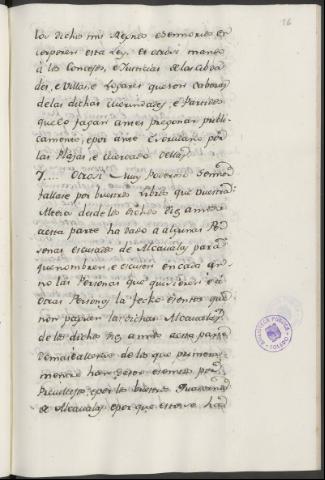 16
los dichos mis Reynos é Señorios en
corporen esta Ley. Et otrosí mando
á los Concejos, é Justicias de las Cibda
des, é Villas, é Lugares que son Cabezas
de las dichas Merindades, é Partidos
que lo fagan ansi pregonar publi-
camente, é por ante Escribano por
las Plazas, é Mercados dellas
7.... Otrosí Muy Poderoso Señor
fallase por vuestros Libros que vuestra
Alteza desde los dichos diez annos
acesta parte ha dado á algunas Per
sonas escusados de Alcavalas, para
que nombren, é escusen en cada an-
no las Personas que quisieren, é á
otras Personas la fecho esentos que
non paguen las dichas Alcavalas
de los dichos diez annos acesta parte
demas allende de los que primera-
mente
Previllejos, é por los vuestros Quadernos
de Alcavalas, é por que esto se ha
BIBLIOTECA PUBLICA
TOLEDO